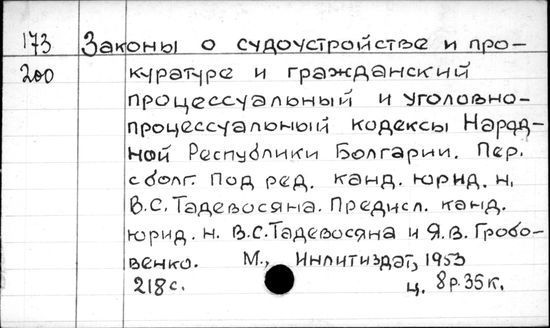 173 Законы о судоустройстве и про-
200 куратуре и гражданский
процессуальный и уголовно-
процессуальный кодексы Народ-
ной Республики Болгарии. Пер.
с болг. Под ред. канд. юрид. н.
В.С. Тадевосяна. Предисл. канд.
юрид. н. В.С. Тадевосяна и Я.В. Гробо-
венко. М., Инлитиздат, 1953
218 с. ц. 8 р. 35 к.